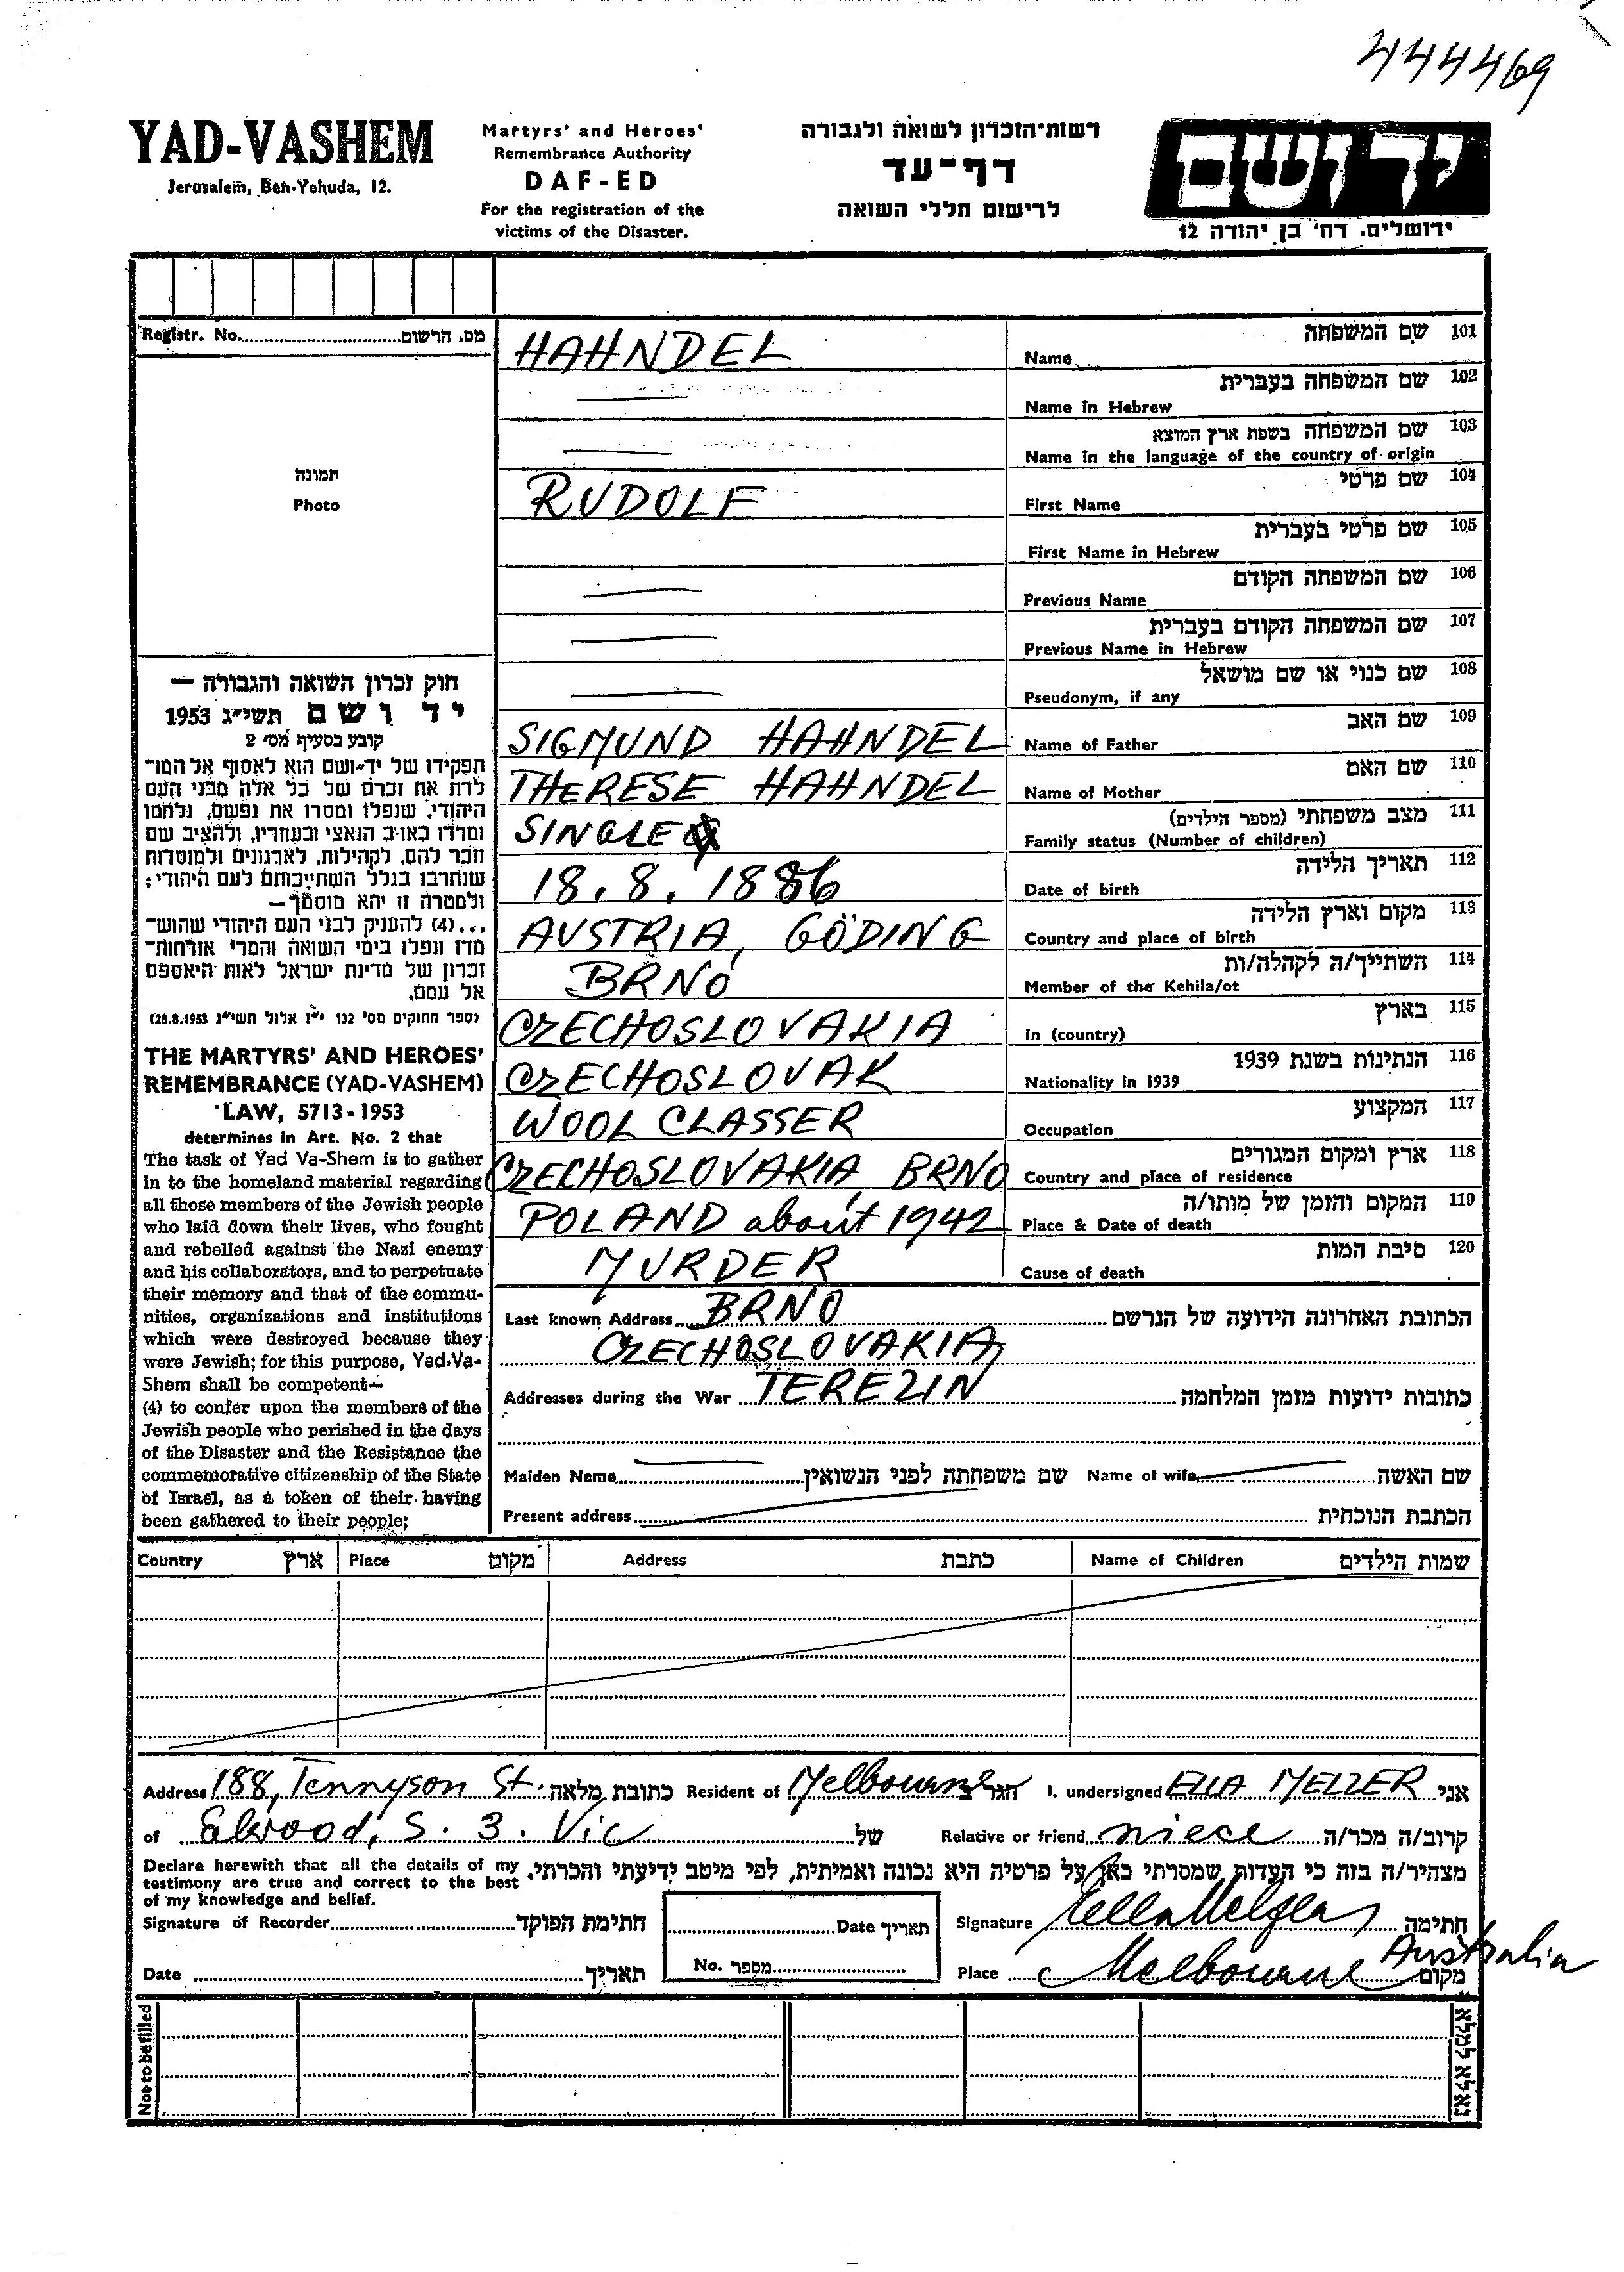 444469
YAD-VASHEM
Jerusalem, Ben-Yehuda, 12.
Martyrs' and Heroes'
Remembrance Authority
DAF-ED
For the registration of the
victims of the Disaster.
רשות-הזכרון לשואה ולגבורה
דף-עד
לרישום חללי השואה
יד ושם
ירושלים, רח' בן יהודה 12
Registr. No. מס. הרשום
תמונה
Photo
חוק זכרון השואה והגבורה —
יד ושם תשי"ג 1953
קובע בסעיף מס' 2
תפקידו של יד-ושם הוא לאסוף אל המו-
לדת את זכרם של כל אלה מבני העם
היהודי, שנפלו ומסרו את נפשם, נלחמו
ומרדו באויב הנאצי ובעוזריו, ולהציב שם
וזכר להם, לקהילות, לארגונים ולמוסדות
שנחרבו בגלל השתייכותם לעם היהודי;
ולמטרה זו יהא מוסמך—
...(4) להעניק לבני העם היהודי שהוש-
מדו ונפלו בימי השואה והמרי אזרחות-
זכרון של מדינת ישראל לאות היאספם
אל עמם.
(ספר החוקים מס' 132 י"ז אלול תשי"ג 28.8.1953)
THE MARTYRS' AND HEROES'
REMEMBRANCE (YAD-VASHEM)
LAW, 5713-1953
determines in Art. No. 2 that
The task of Yad Va-Shem is to gather
in to the homeland material regarding
all those members of the Jewish people
who laid down their lives, who fought
and rebelled against the Nazi enemy
and his collaborators, and to perpetuate
their memory and that of the commu-
nities, organizations and institutions
which were destroyed because they
were Jewish; for this purpose, Yad-Va-
Shem shall be competent—
(4) to confer upon the members of the
Jewish people who perished in the days
of the Disaster and the Resistance the
commemorative citizenship of the State
of Israel, as a token of their having
been gathered to their people;
HAHNDEL Name שם המשפחה 101
Name in Hebrew שם המשפחה בעברית 102
Name in the language of the country of origin שם המשפחה בשפת ארץ המוצא 103
RUDOLF First Name שם פרטי 104
First Name in Hebrew שם פרטי בעברית 105
Previous Name שם המשפחה הקודם 106
Previous Name in Hebrew שם המשפחה הקודם בעברית 107
Pseudonym, if any שם כנוי או שם מושאל 108
SIGMUND HAHNDEL Name of Father שם האב 109
THERESE HAHNDEL Name of Mother שם האם 110
SINGLE Family status (Number of children) מצב משפחתי (מספר הילדים) 111
18. 8. 1886 Date of birth תאריך הלידה 112
AUSTRIA, GÖDING Country and place of birth מקום וארץ הלידה 113
BRNO Member of the Kehila/ot השתייך/ה לקהלה/ות 114
CZECHOSLOVAKIA In (country) בארץ 115
CZECHOSLOVAK Nationality in 1939 הנתינות בשנת 1939 116
WOOL CLASSER Occupation המקצוע 117
CZECHOSLOVAKIA, BRNO Country and place of residence ארץ ומקום המגורים 118
POLAND about 1942 Place & Date of death המקום והזמן של מותו/ה 119
MURDER Cause of death סיבת המות 120
Last known Address BRNO הכתובת האחרונה הידועה של הנרשם
CZECHOSLOVAKIA,
Addresses during the War TEREZIN כתובות ידועות מזמן המלחמה
Maiden Name שם משפחתה לפני הנשואין Name of wife שם האשה
Present address הכתבת הנוכחית
Country ארץ Place מקום Address כתבת Name of Children שמות הילדים
Address 188, Tennyson St. כתובת מלאה Resident of Melbourne הגר ב I. undersigned ELLA MELZER אני
of Elwood, S. 3. Vic של Relative or friend niece קרוב/ה מכר/ה
Declare herewith that all the details of my
testimony are true and correct to the best
of my knowledge and belief.
מצהיר/ה בזה כי העדות שמסרתי כאן על פרטיה היא נכונה ואמיתית, לפי מיטב ידיעתי והכרתי.
Signature of Recorder חתימת הפוקד Date תאריך Signature Ella Melzer חתימה
Date תאריך No. מספר Place Melbourne Australia מקום
Not to be filled נא לא למלא